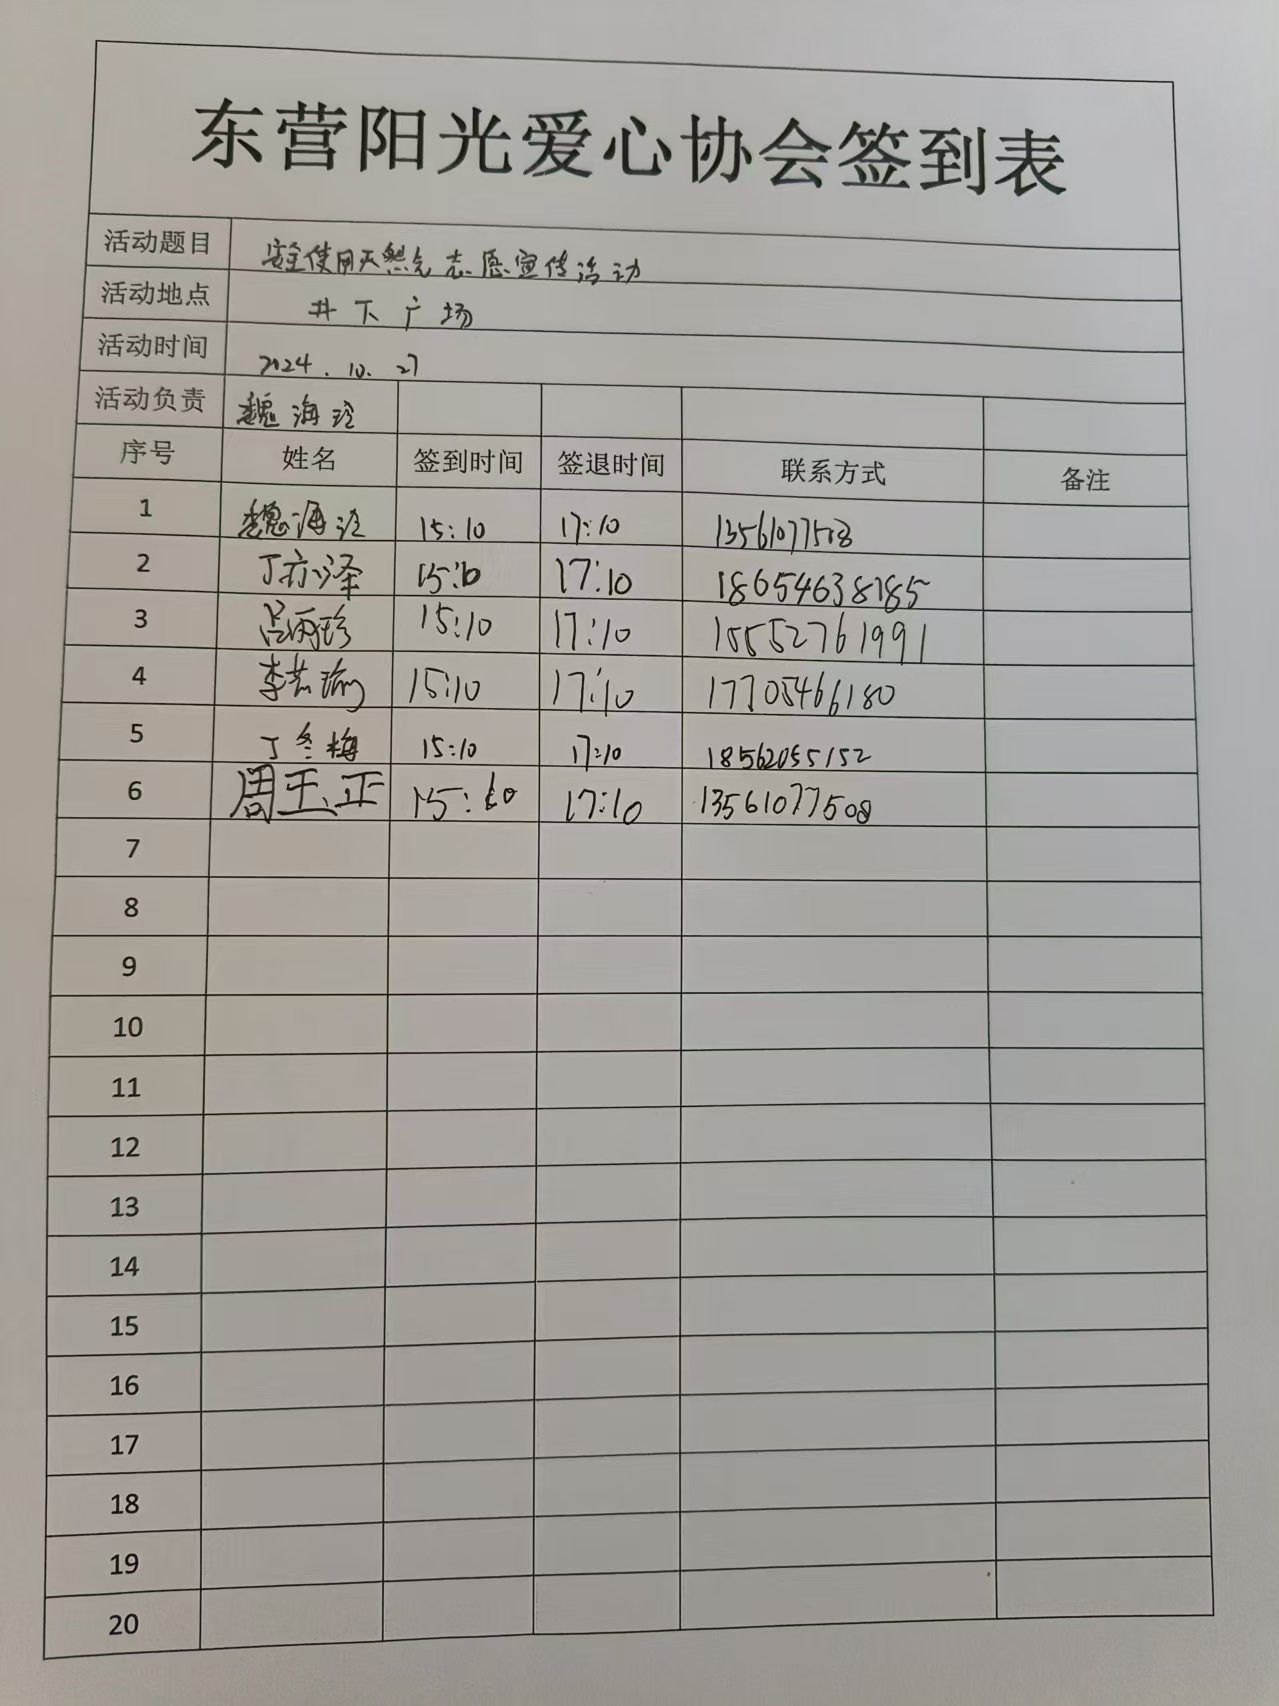 东营阳光爱心协会签到表
活动题目 安全使用天然气志愿宣传活动
活动地点 井下广场
活动时间 2024.10.27
活动负责 魏海玲
序号 姓名 签到时间 签退时间 联系方式 备注
1 魏海玲 15:10 17:10 13561077508
2 丁亦泽 15:10 17:10 18654638785
3 吕丙珍 15:10 17:10 15552761991
4 李若瑜 15:10 17:10 17705466180
5 丁冬梅 15:10 17:10 18562055152
6 周玉正 15:10 17:10 13561077508
7
8
9
10
11
12
13
14
15
16
17
18
19
20